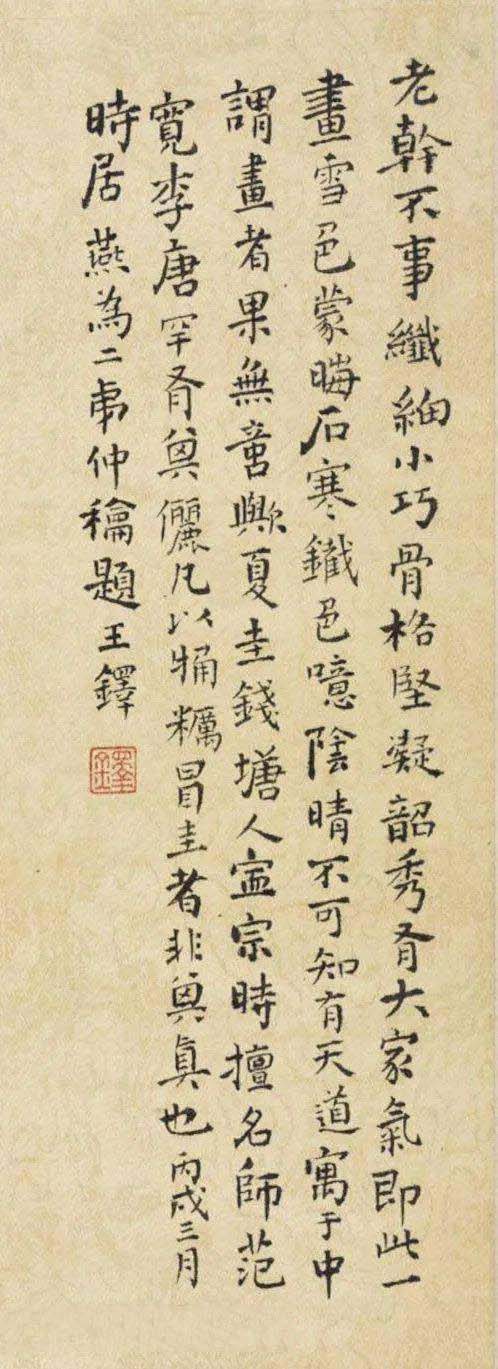 老幹不事纖細小巧骨格堅凝韶秀有大家氣即此一
畫雪色蒙晦石寒鐵色噫陰晴不可知有天道寓于中
謂畫者果無意歟夏圭錢塘人寍宗時擅名師范
寬李唐罕有其儷凡以觕糲冒圭者非其真也丙戌三月
時居燕為二弟仲龢題王鐸